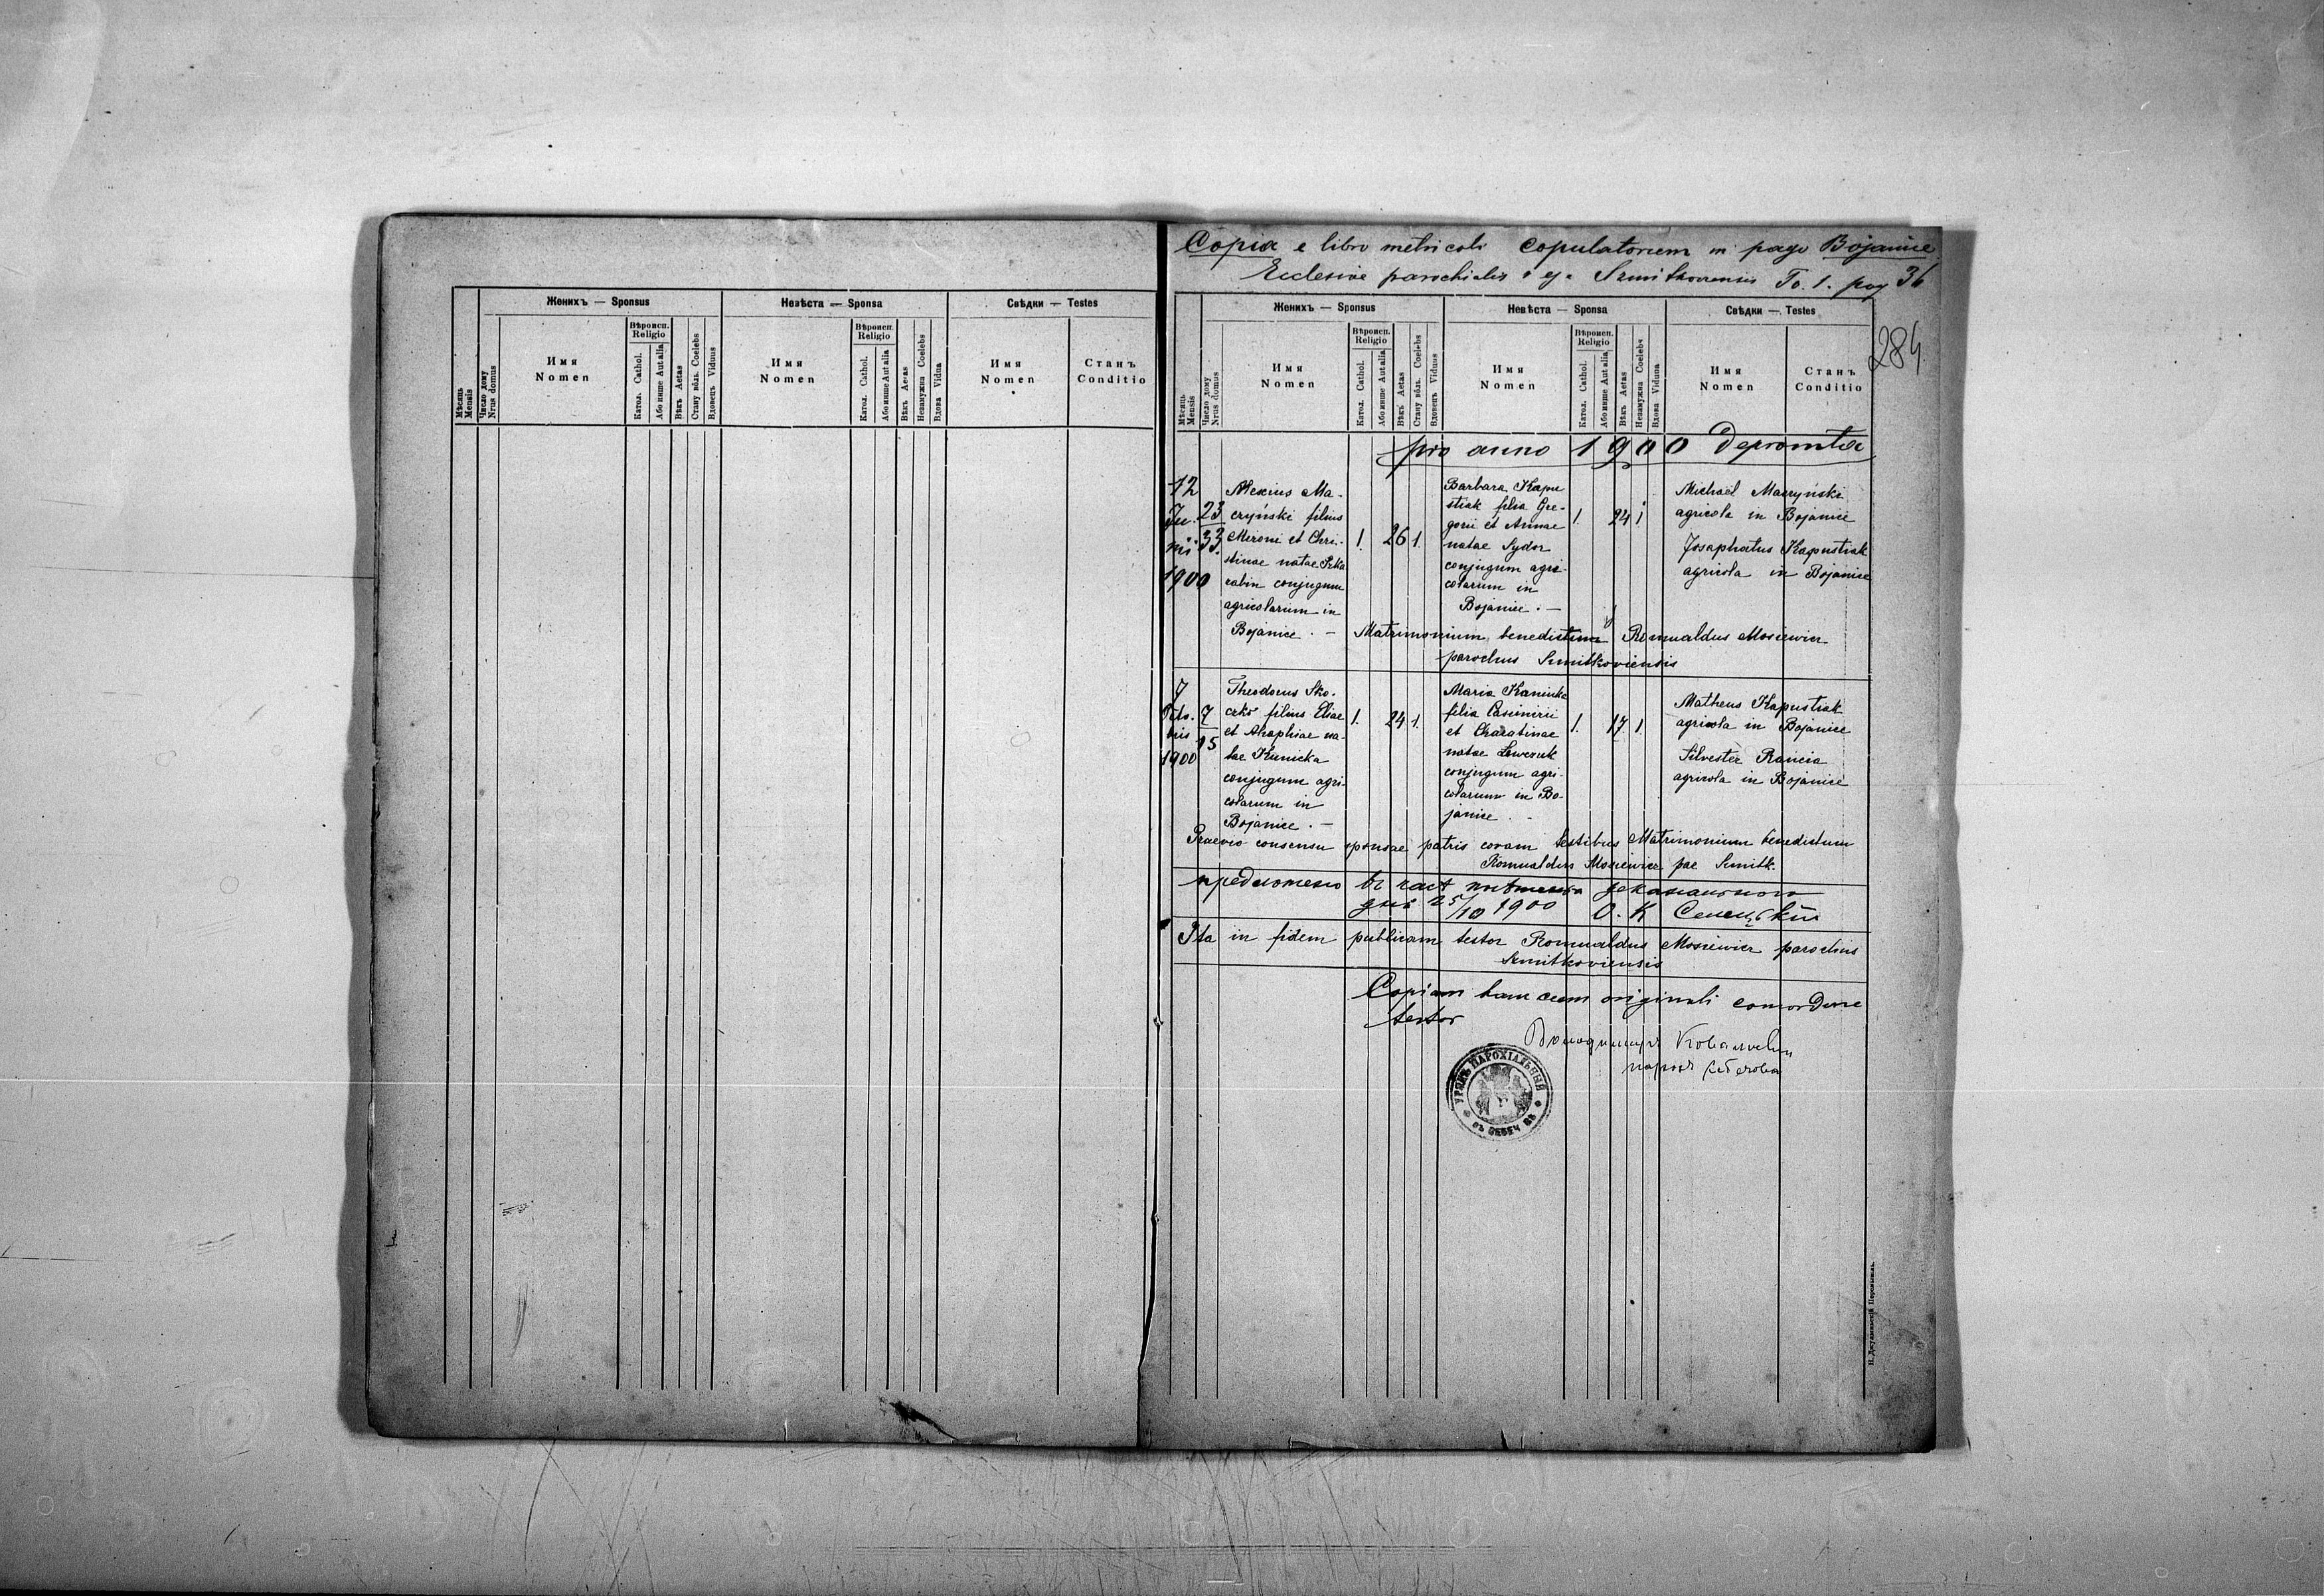 Женихъ — Sponsus
Невѣста — Sponsa
Свѣдки — Testes
Мѣсяць Mensis
Число дому Nrus domus
Имя
Nomen
Вѣроисп.
Religio
Катол. Cathol.
Або инше Aut alia
Вѣкъ Aetas
Стану вôль. Coelebs
Вдовець Viduus
Имя
Nomen
Вѣроисп.
Religio
Катол. Cathol.
Або инше Aut alia
Вѣкъ Aetas
Незамужна Coelebs
Вдова Vidua
Имя
Nomen
Станъ
Conditio
Copia e libro metricali copulatorum in pago Bojanice
Ecclesiae parochialis To. 1. pag 36
284
Женихъ — Sponsus
Невѣста — Sponsa
Свѣдки — Testes
Мѣсяць Mensis
Число дому Nrus domus
Имя
Nomen
Вѣроисп.
Religio
Катол. Cathol.
Або инше Aut alia
Вѣкъ Aetas
Стану вôль. Coelebs
Вдовець Viduus
Имя
Nomen
Вѣроисп.
Religio
Катол. Cathol.
Або инше Aut alia
Вѣкъ Aetas
Незамужна Coelebs
Вдова Vidua
Имя
Nomen
Станъ
Conditio
pro anno 1900 depromta
12
Ju-
nii
1900
23
33
Alexius Ma-
czyński filius
Meroni et Chri-
stinae natae
conjugum
agricolarum in
Bojanice . —
1. 26 1.
Barbara Kapu
stiak filia Gre-
gorii et Annae
natae Sydor
conjugum agri-
colarum in
Bojanice . —
1. 24 1
Michaël Maczyński
agricola in Bojanice
Josaphatus Kapustiak
agricola in Bojanice
Matrimonium benedictum Romualdus Mosiewicz
parochus Smitkoviensis
7
1900
7
15
Theodorus Sko-
czko filius Eliae
et Ahaphiae na-
tae Kunicka
conjugum agri-
colarum in
Bojanice . —
1. 24 1.
Maria Kaminka
filia Casimirii
et Charatinae
natae Lewczuk
conjugum agri-
colarum in Bo-
janice .
1. 17. 1.
Matheus Kapustiak
agricola in Bojanice
Silvester Rancia
agricola in Bojanice
Praevio consensu sponsae patris coram testibus Matrimonium benedictum
Romualdus Mosiewicz Smitk.
предложено
дня 25/10 1900 О. К
Ita in fidem publicam testor Romualdus Mosiewicz parochus
Smitkoviensis
Copiam hanc cum originali
testor
УРЯДЪ ПАРОХІАЛЬНЫЙ